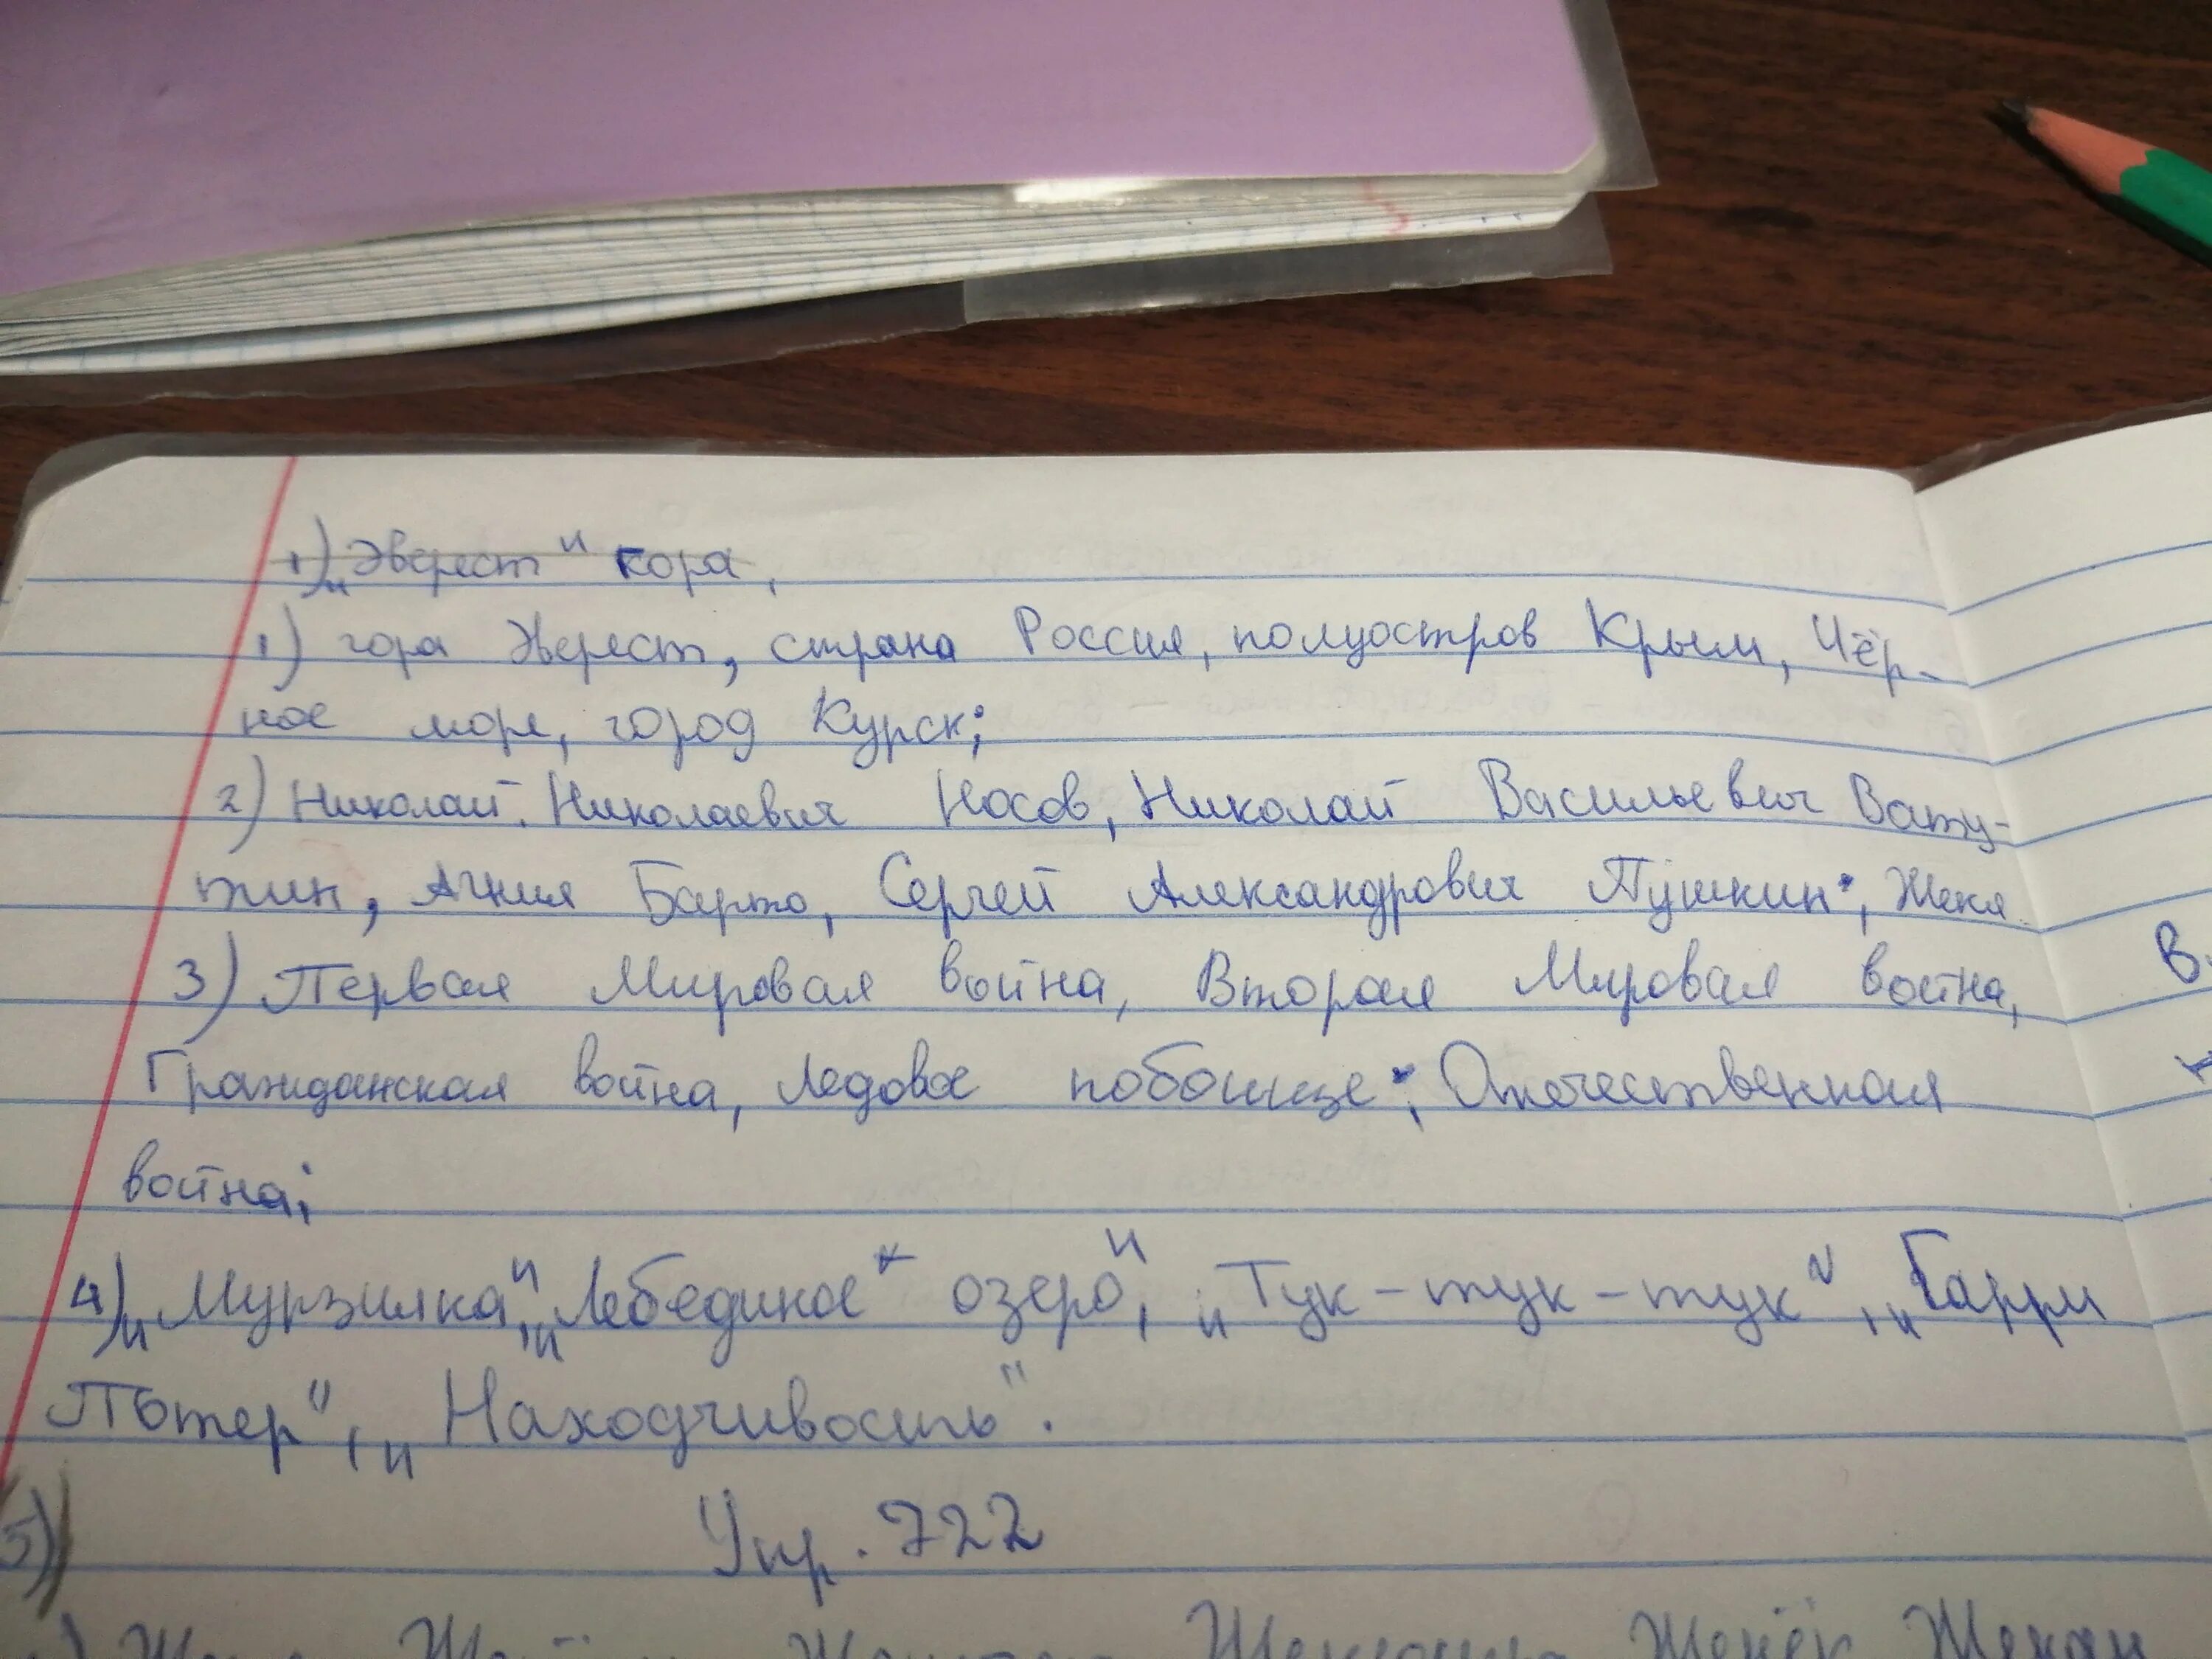 1) „Эверест" гора,
1) гора Эверест, страна Россия, полуостров Крым, Чёр-
ное море, город Курск;
2) Николай Николаевич Носов, Николай Васильевич Вату-
тин, Агния Барто, Сергей Александрович Пушкин; Женя
3) Первая Мировая война, Вторая Мировая война,
Гражданская война, Ледовое побоище; Отечественная
война;
4) „Мурзилка", „Лебединое озеро", „Тук-тук-тук", „Гарри
Потер", „Находчивость".
5)
Упр. 722
Женёк Женан
В